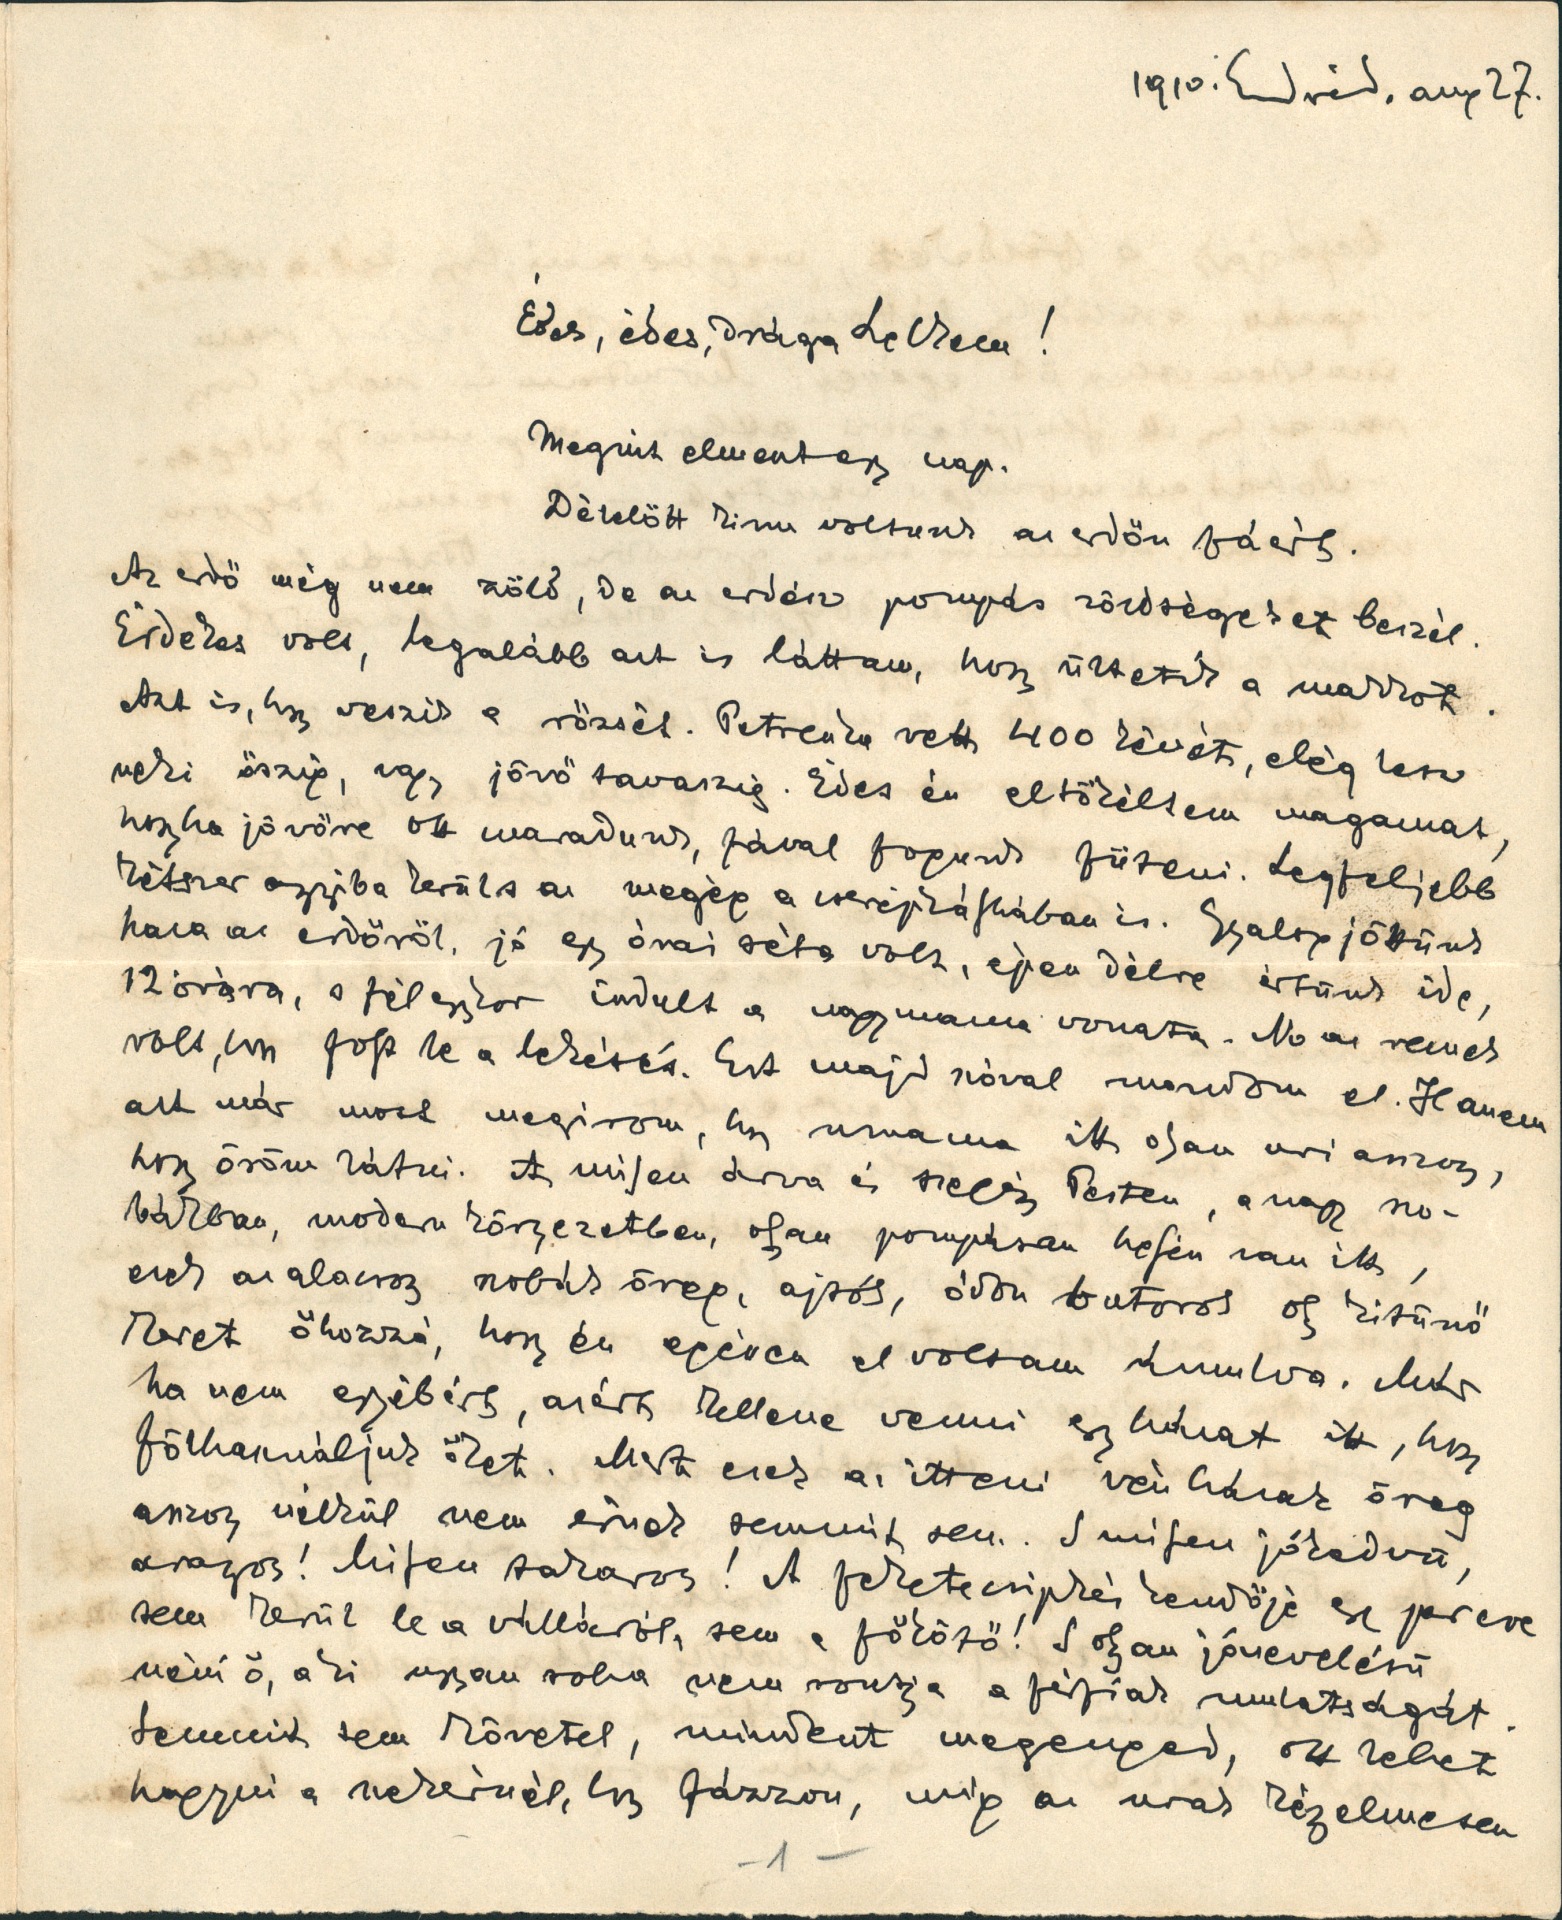 1910. Endréd. aug 27.
Édes, édes, drága Lelkem!
Megint elment egy nap.
Délelőtt kinn voltunk az erdőn fáért.
Az erdő még nem zöld, de az erdész pompás zöldségeket beszél.
Érdekes volt, legalább azt is láttam, hogy ültetik a makkot.
Azt is, hogy veszik a rőzsét. Petrenka vett 400 kévét, elég lesz
neki őszig, vagy jövő tavaszig. Édes én eltökéltem magamat,
hogyha jövőre ott maradunk, fával fogunk fűteni. Legfeljebb
kétszer annyiba kerül s az megég a cserépkályhában is. Gyalog jöttünk
haza az erdőről, jó egy órai séta volt, épen délre értünk ide,
12 órára, s fél egykor indult a nagymama vonata. No az remek
volt, hogy folyt le a lekésés. Ezt majd szóval mondom el. Hanem
azt már most megirom, hogy nmama itt olyan uri asszony,
hogy öröm látni. A milyen árva és szegény Pesten, a nagy szo-
bákban, modern környezetben, olyan pompásan helyén van itt,
ezek az alacsony szobák öreg, ajtós, ódon butorok oly kitünő
keret őhozzá, hogy én egészen el voltam ámulva. Már
ha nem egyébért, azért kellene venni egy házat itt, hogy
fölhasználjuk őket. Mert ezek az itteni vén házak öreg
asszony nélkül nem érnek semmit sem. S milyen jókedvü,
aranyos! Milyen takaros! A fekete csipkés kendője egy percre
sem kerül le a válláról, sem a főkötő! S olyan jónevelésü
néni ő, aki ugyan soha nem rontja a férfiak mulatságát.
Semmit sem követel, mindent megenged, ott lehet
hagyni a szekérnél, hogy fázzon, mig az urak kényelmesen
-1-